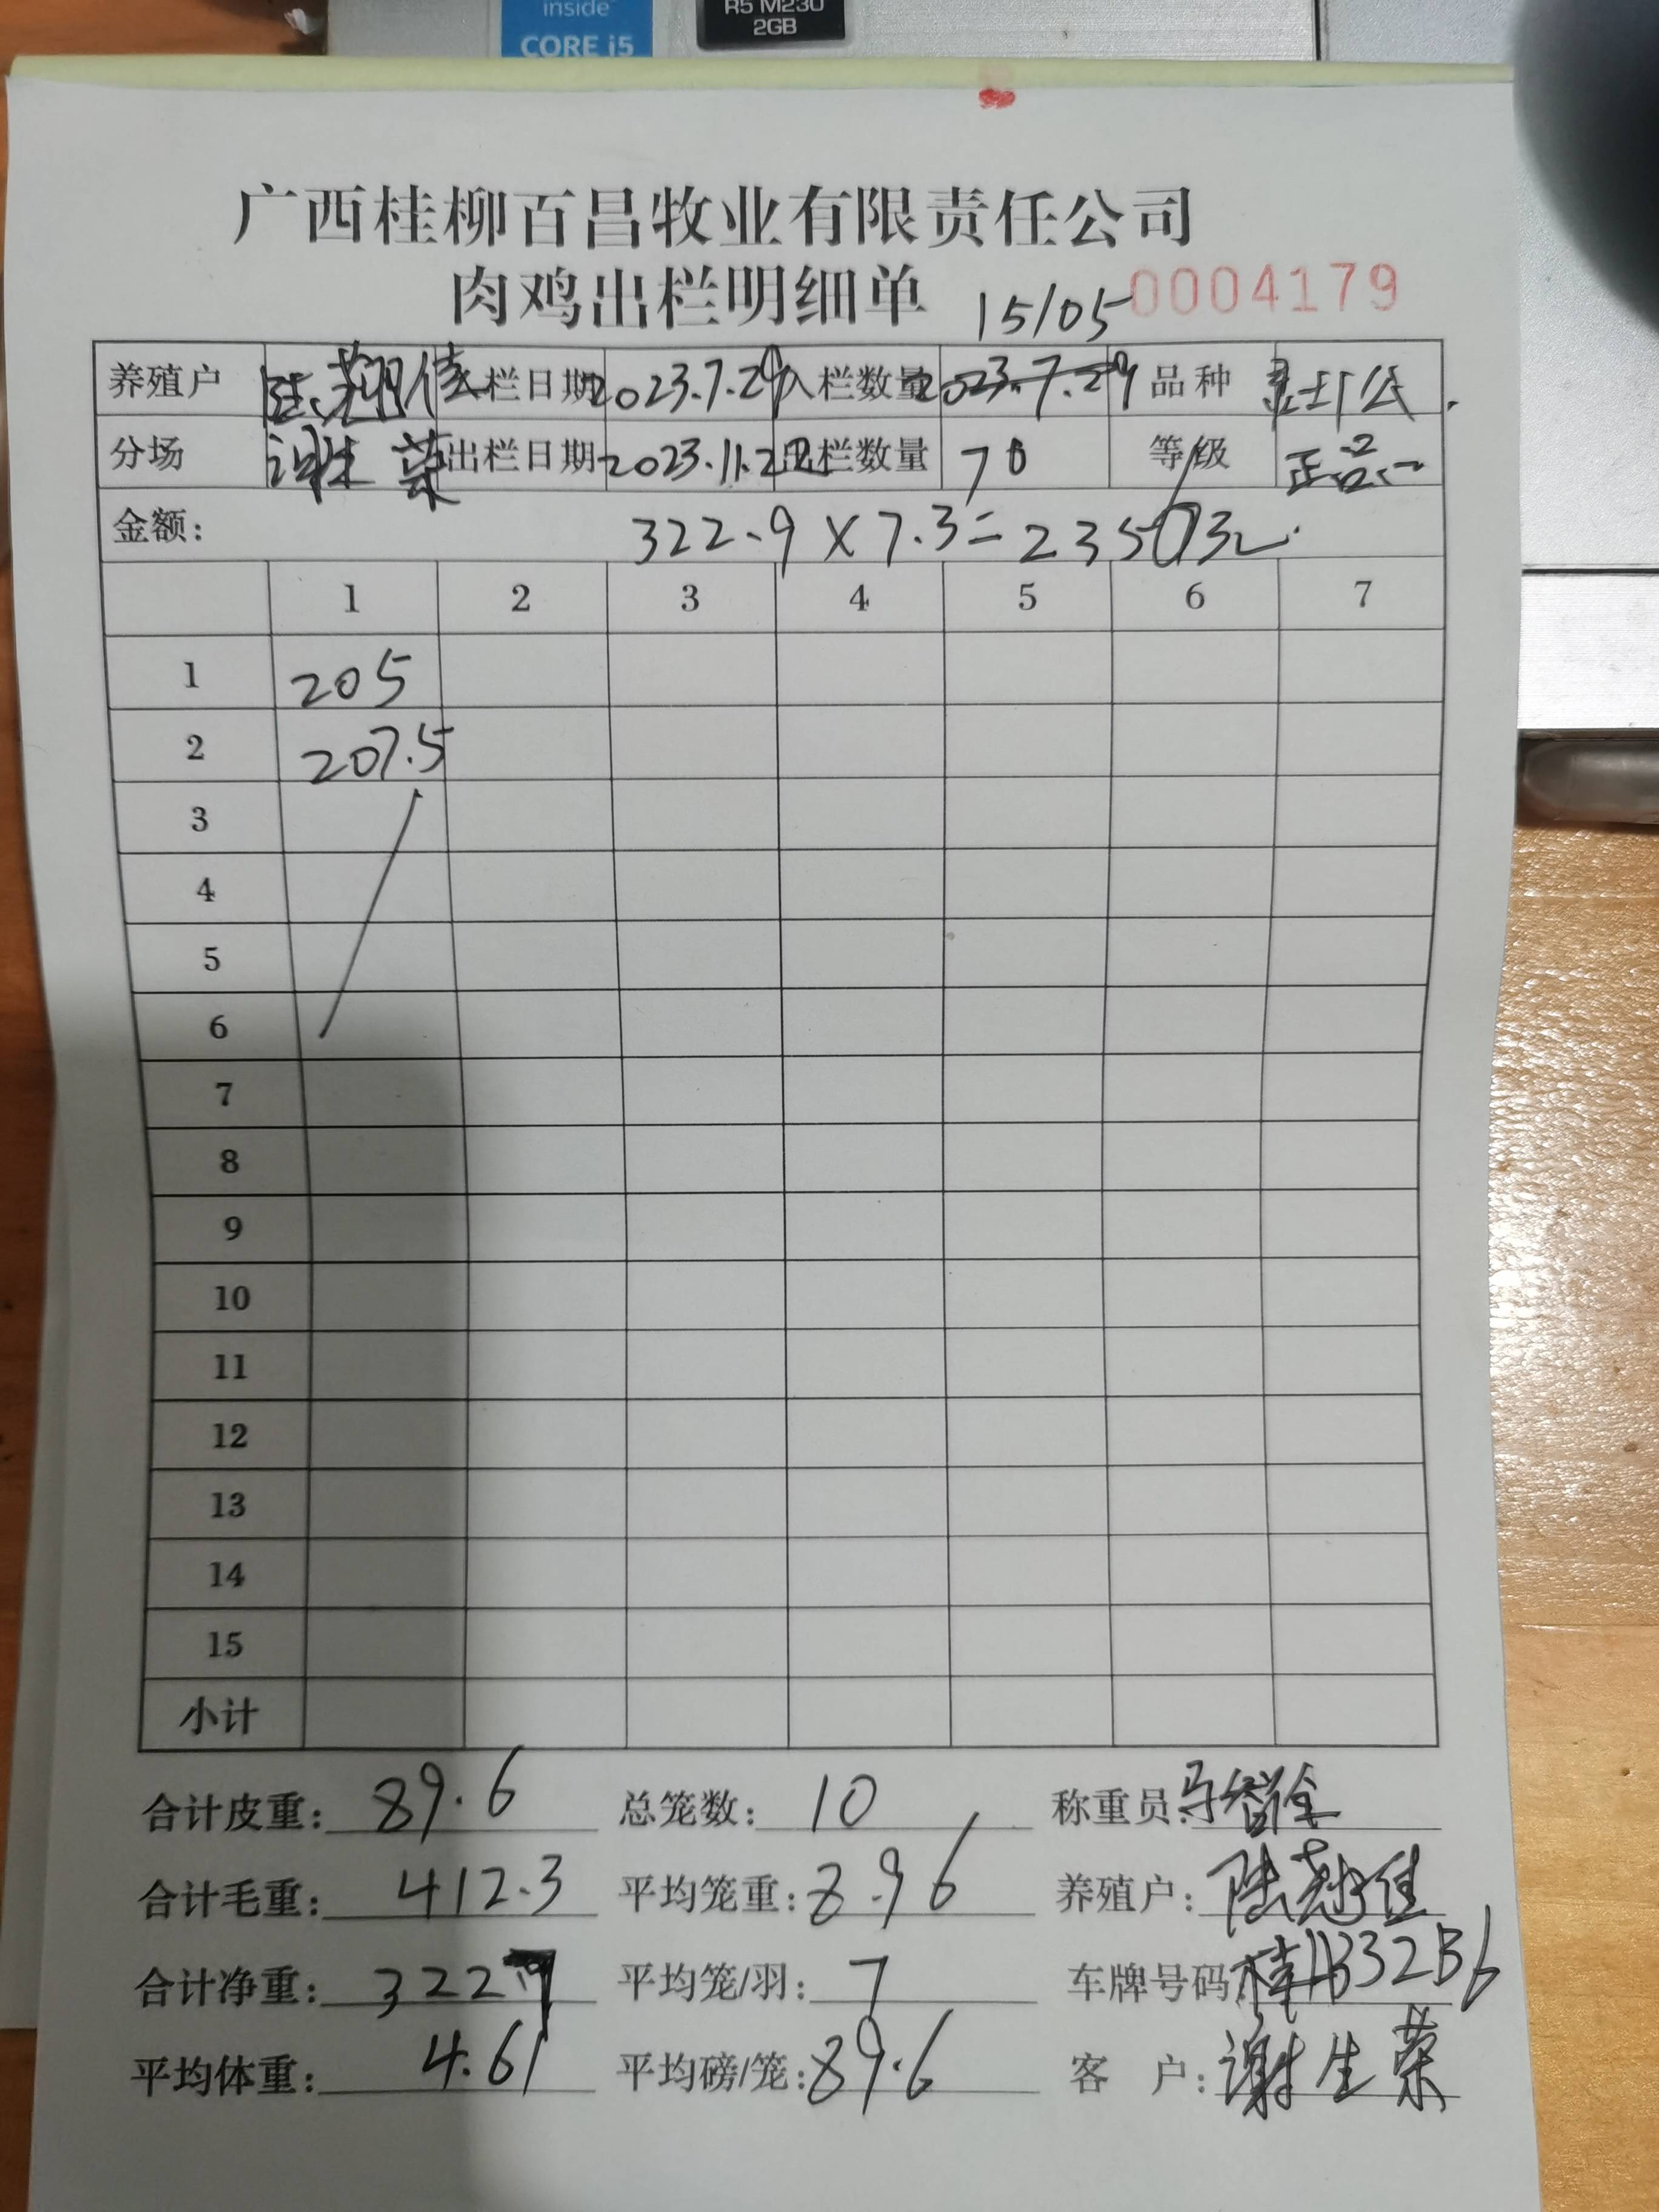 inside
CORE i5
R5 M230
2GB
广西桂柳百昌牧业有限责任公司
肉鸡出栏明细单 15/05 0004179
养殖户 入栏日期 2023.7.29 入栏数量 2023.7.29 品种
分场 谢生荣 出栏日期 2023.11.22 出栏数量 70 等级 正品
金额: 322.9×7.3=2357元.
1 2 3 4 5 6 7
1 205
2 207.5
3
4
5
6
7
8
9
10
11
12
13
14
15
小计
合计皮重: 89.6 总笼数: 10 称重员:
合计毛重: 412.3 平均笼重: 8.96 养殖户:
合计净重: 322 平均笼/羽: 7 车牌号码:
平均体重: 4.61 平均磅/笼: 89.6 客 户: 谢生荣